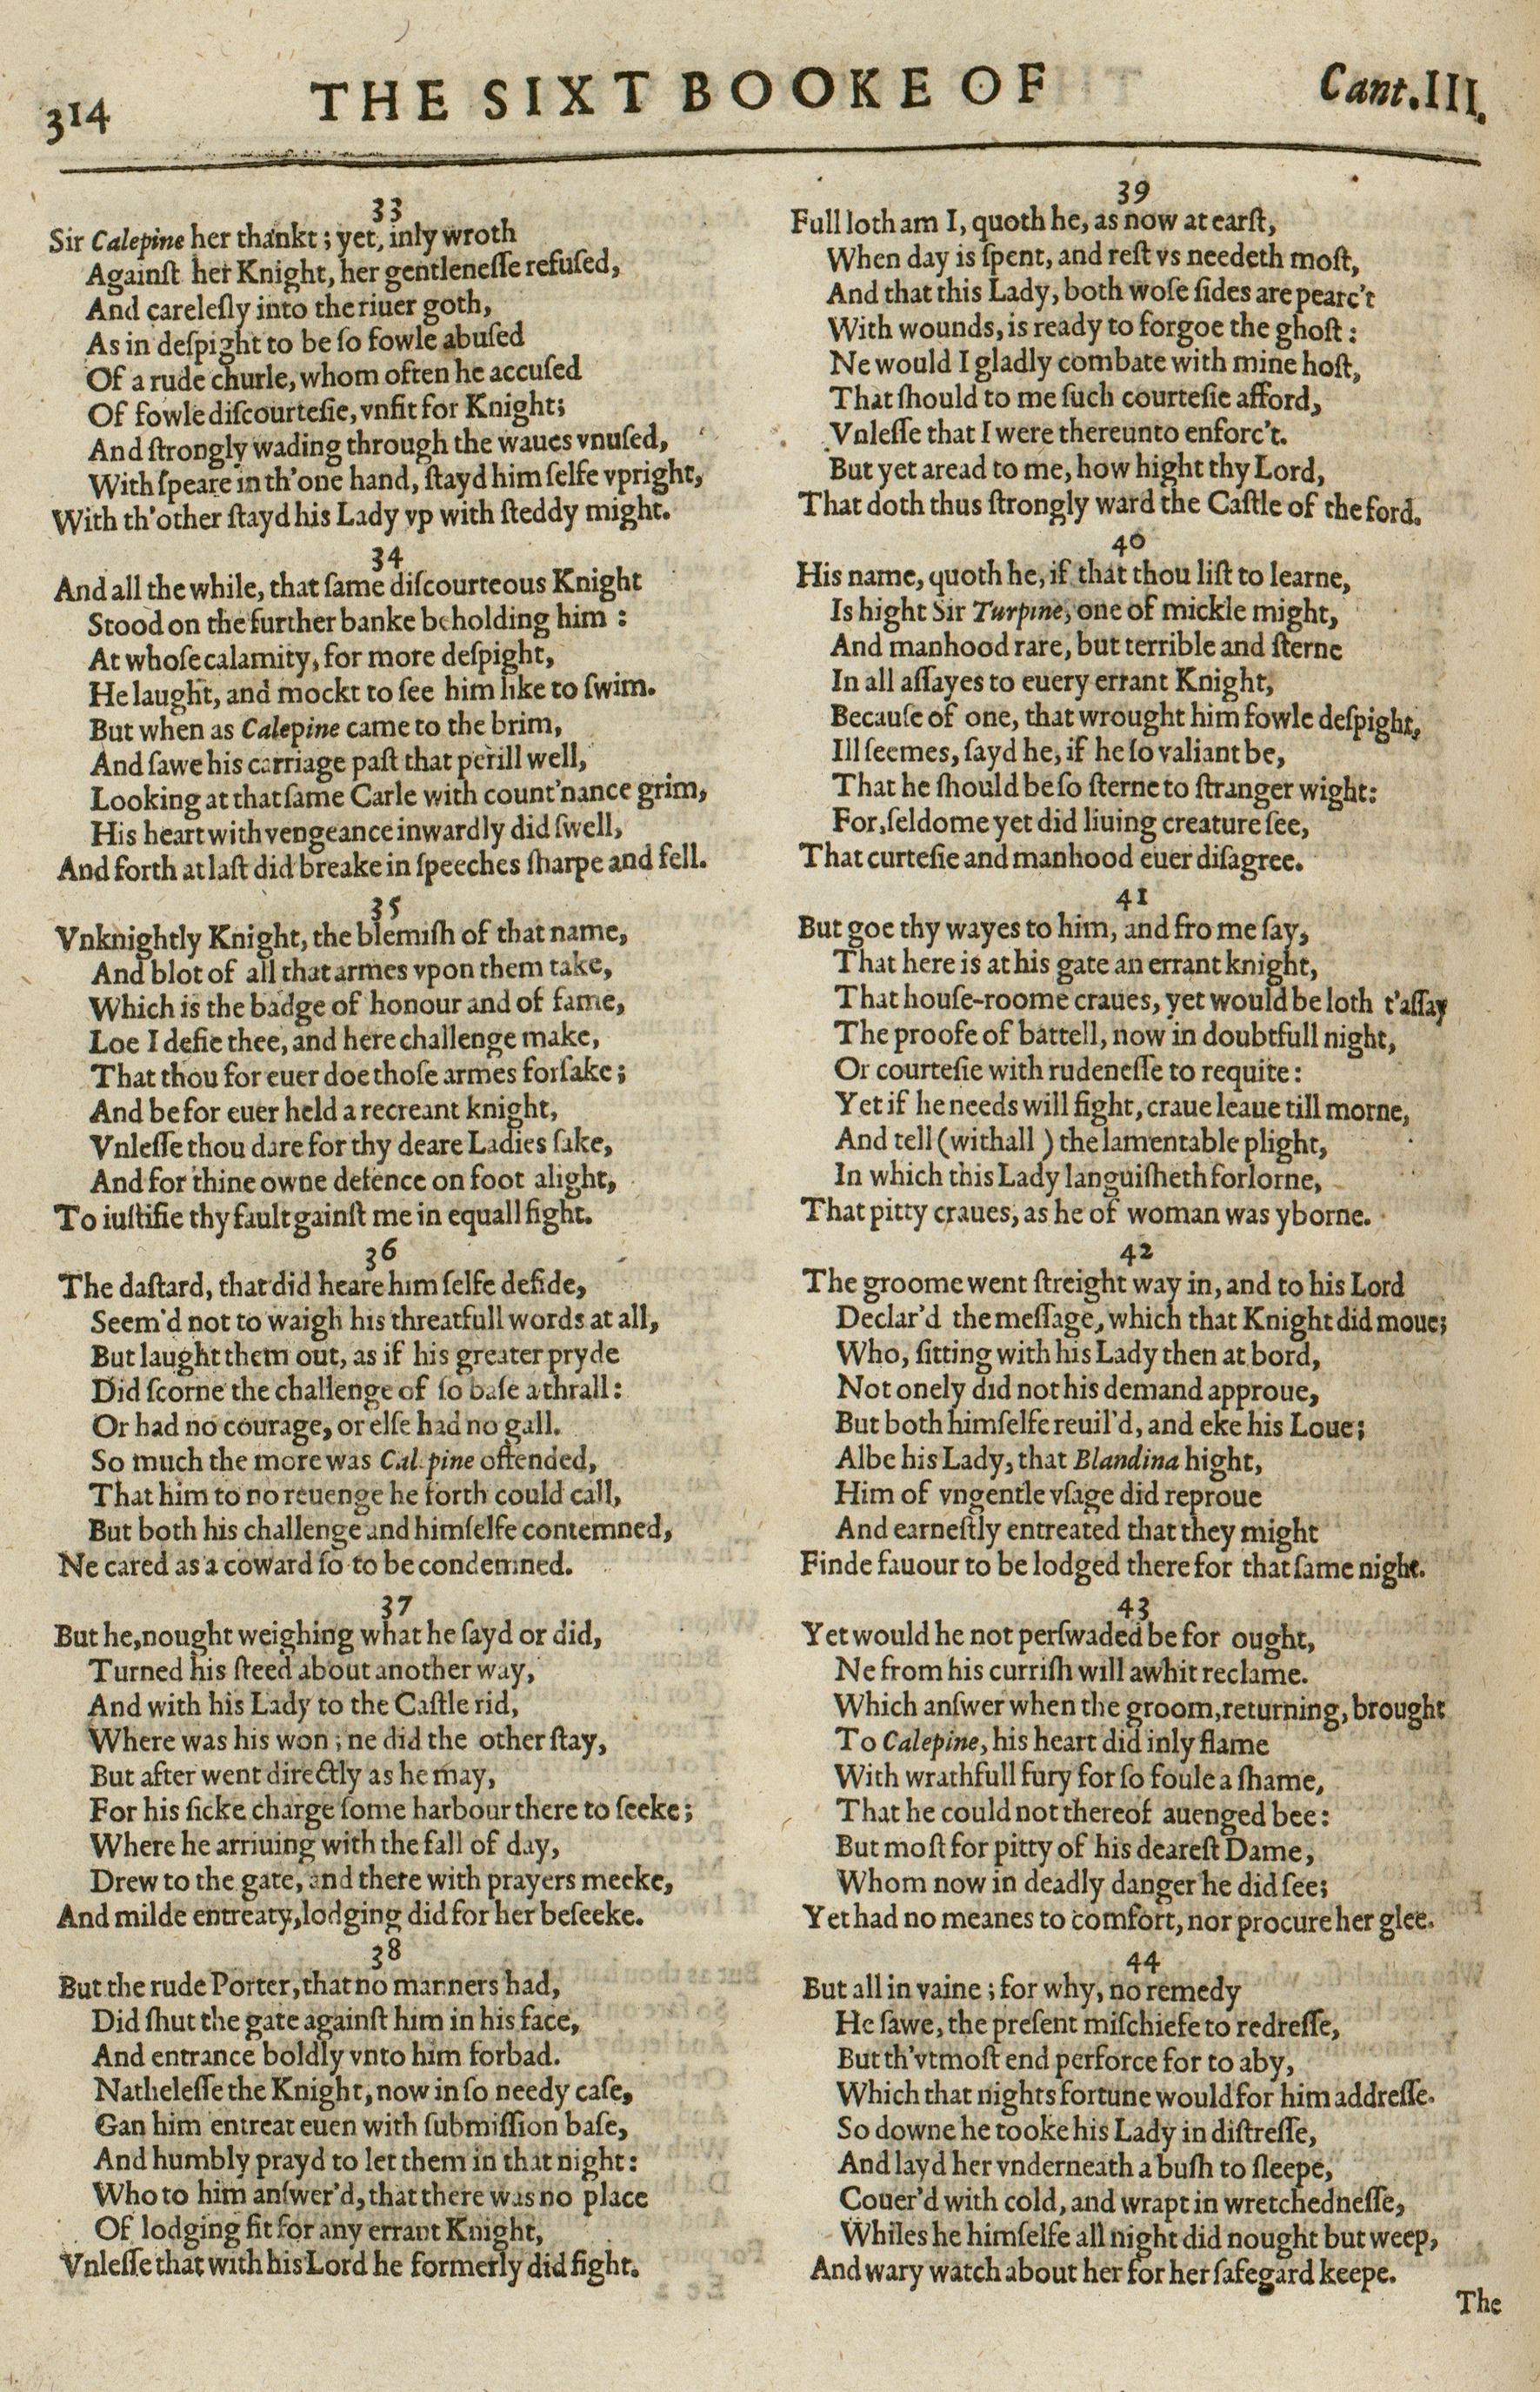 314 THE SIXT BOOKE OF Cant.III.
33
Sir Calepine her thankt; yet, inly wroth
Againſt her Knight, her gentleneſſe refuſed,
And careleſly into the riuer goth,
As in deſpight to be ſo fowle abuſed
Of a rude churle, whom often he accuſed
Of fowle diſcourteſie, vnfit for Knight;
And ſtrongly wading through the waues vnuſed,
With ſpeare in th'one hand, ſtayd him ſelfe vpright,
With th'other ſtayd his Lady vp with ſteddy might.
34
And all the while, that ſame diſcourteous Knight
Stood on the further banke beholding him:
At whoſe calamity, for more deſpight,
He laught, and mockt to ſee him like to ſwim.
But when as Calepine came to the brim,
And ſawe his carriage paſt that perill well,
Looking at that ſame Carle with count'nance grim,
His heart with vengeance inwardly did ſwell,
And forth at laſt did breake in ſpeeches ſharpe and fell.
35
Vnknightly Knight, the blemiſh of that name,
And blot of all that armes vpon them take,
Which is the badge of honour and of fame,
Loe I defie thee, and here challenge make,
That thou for euer doe thoſe armes forſake;
And be for euer held a recreant knight,
Vnleſſe thou dare for thy deare Ladies ſake,
And for thine owne defence on foot alight,
To iuſtifie thy fault gainſt me in equall fight.
36
The daſtard, that did heare him ſelfe defide,
Seem'd not to waigh his threatfull words at all,
But laught them out, as if his greater pryde
Did ſcorne the challenge of ſo baſe a thrall:
Or had no courage, or elſe had no gall.
So much the more was Calepine offended,
That him to no reuenge he forth could call,
But both his challenge and himſelfe contemned,
Ne cared as a coward ſo to be condemned.
37
But he, nought weighing what he ſayd or did,
Turned his ſteed about another way,
And with his Lady to the Caſtle rid,
Where was his won; ne did the other ſtay,
But after went directly as he may,
For his ſicke charge ſome harbour there to ſeeke;
Where he arriuing with the fall of day,
Drew to the gate, and there with prayers meeke,
And milde entreaty, lodging did for her beſeeke.
38
But the rude Porter, that no manners had,
Did ſhut the gate againſt him in his face,
And entrance boldly vnto him forbad.
Natheleſſe the Knight, now in ſo needy caſe,
Gan him entreat euen with ſubmiſſion baſe,
And humbly prayd to let them in that night:
Who to him anſwer'd, that there was no place
Of lodging fit for any errant Knight,
Vnleſſe that with his Lord he formerly did fight.
39
Full loth am I, quoth he, as now at earſt,
When day is ſpent, and reſt vs needeth moſt,
And that this Lady, both woſe ſides are pearc't
With wounds, is ready to forgoe the ghoſt:
Ne would I gladly combate with mine hoſt,
That ſhould to me ſuch courteſie afford,
Vnleſſe that I were thereunto enforc't.
But yet aread to me, how hight thy Lord,
That doth thus ſtrongly ward the Caſtle of the ford.
40
His name, quoth he, if that thou liſt to learne,
Is hight Sir Turpine, one of mickle might,
And manhood rare, but terrible and ſterne
In all aſſayes to euery errant Knight,
Becauſe of one, that wrought him fowle deſpight,
Ill ſeemes, ſayd he, if he ſo valiant be,
That he ſhould be ſo ſterne to ſtranger wight:
For, ſeldome yet did liuing creature ſee,
That curteſie and manhood euer diſagree.
41
But goe thy wayes to him, and fro me ſay,
That here is at his gate an errant knight,
That houſe-roome craues, yet would be loth t'aſſay
The proofe of battell, now in doubtfull night,
Or courteſie with rudeneſſe to requite:
Yet if he needs will fight, craue leaue till morne,
And tell (withall) the lamentable plight,
In which this Lady languiſheth forlorne,
That pitty craues, as he of woman was yborne.
42
The groome went ſtreight way in, and to his Lord
Declar'd the meſſage, which that Knight did moue;
Who, ſitting with his Lady then at bord,
Not onely did not his demand approue,
But both himſelfe reuil'd, and eke his Loue;
Albe his Lady, that Blandina hight,
Him of vngentle vſage did reproue
And earneſtly entreated that they might
Finde fauour to be lodged there for that ſame night.
43
Yet would he not perſwaded be for ought,
Ne from his curriſh will awhit reclame.
Which anſwer when the groom, returning, brought
To Calepine, his heart did inly flame
With wrathfull fury for ſo foule a ſhame,
That he could not thereof auenged bee:
But moſt for pitty of his deareſt Dame,
Whom now in deadly danger he did ſee;
Yet had no meanes to comfort, nor procure her glee.
44
But all in vaine; for why, no remedy
He ſawe, the preſent miſchiefe to redreſſe,
But th'vtmoſt end perforce for to aby,
Which that nights fortune would for him addreſſe.
So downe he tooke his Lady in diſtreſſe,
And layd her vnderneath a buſh to ſleepe,
Couer'd with cold, and wrapt in wretchedneſſe,
Whiles he himſelfe all night did nought but weep,
And wary watch about her for her ſafegard keepe.
The